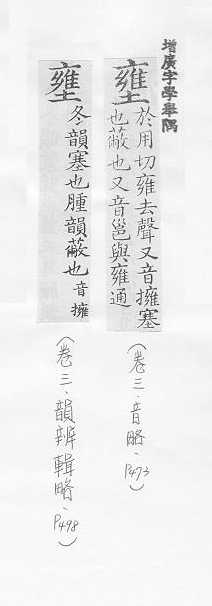 增廣字學舉隅
壅
於用切雍去聲又音擁塞
也蔽也又音邕與雍通
(卷三.音略.P473)
壅
冬韻塞也腫韻蔽也音擁
(卷三.韻辨輯略.P498)